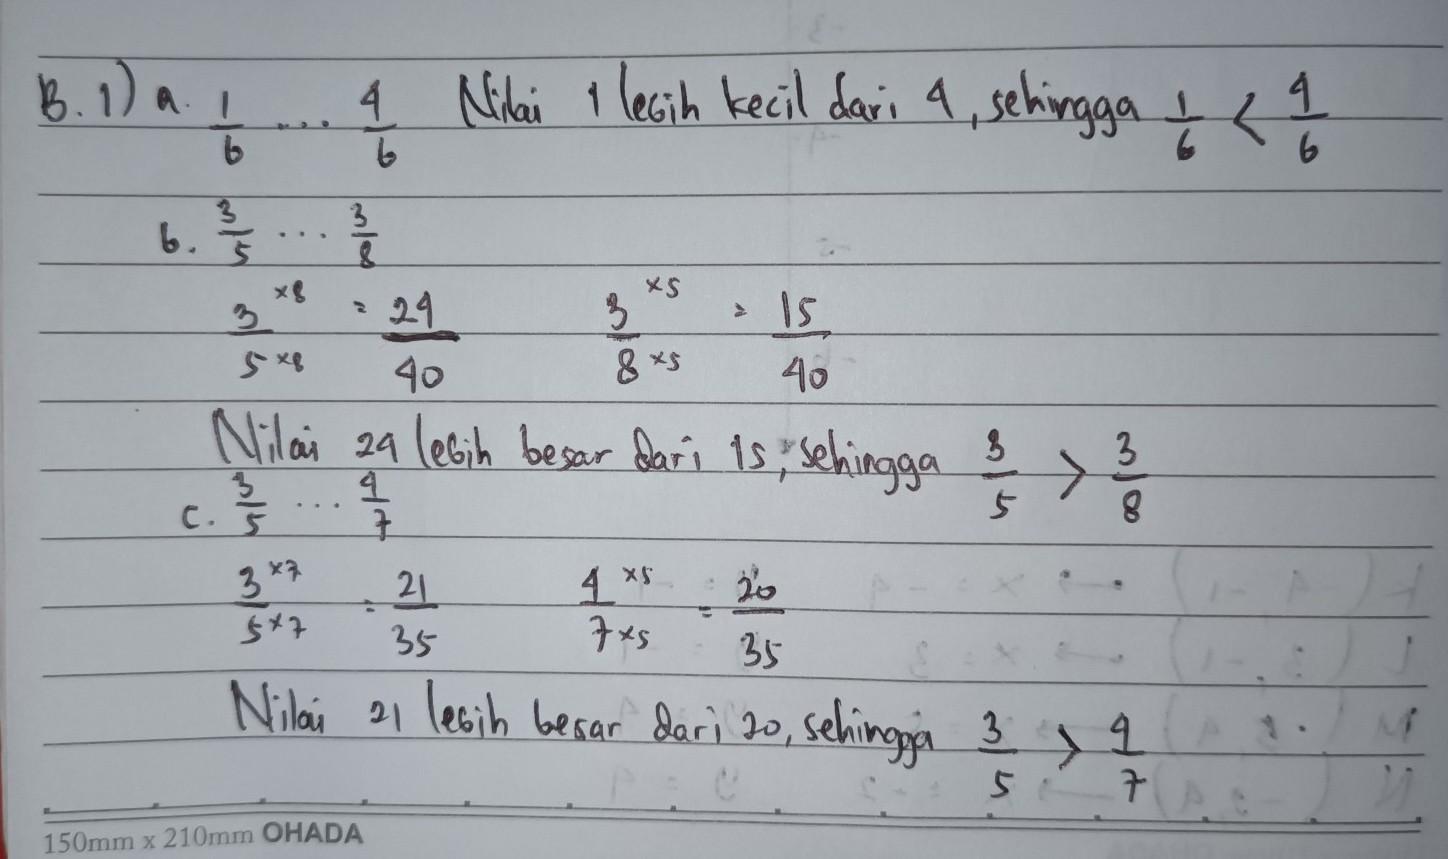 B. 1) a. 1/6 ... 4/6 Nilai 1 lebih kecil dari 4, sehingga 1/6 < 4/6
b. 3/5 ... 3/8
3 ×8 / 5 ×8 = 24/40 3 ×5 / 8 ×5 = 15/40
Nilai 24 lebih besar dari 15, sehingga 3/5 > 3/8
c. 3/5 ... 4/7
3 ×7 / 5 ×7 = 21/35 4 ×5 / 7 ×5 = 20/35
Nilai 21 lebih besar dari 20, sehingga 3/5 > 4/7
150mm x 210mm OHADA